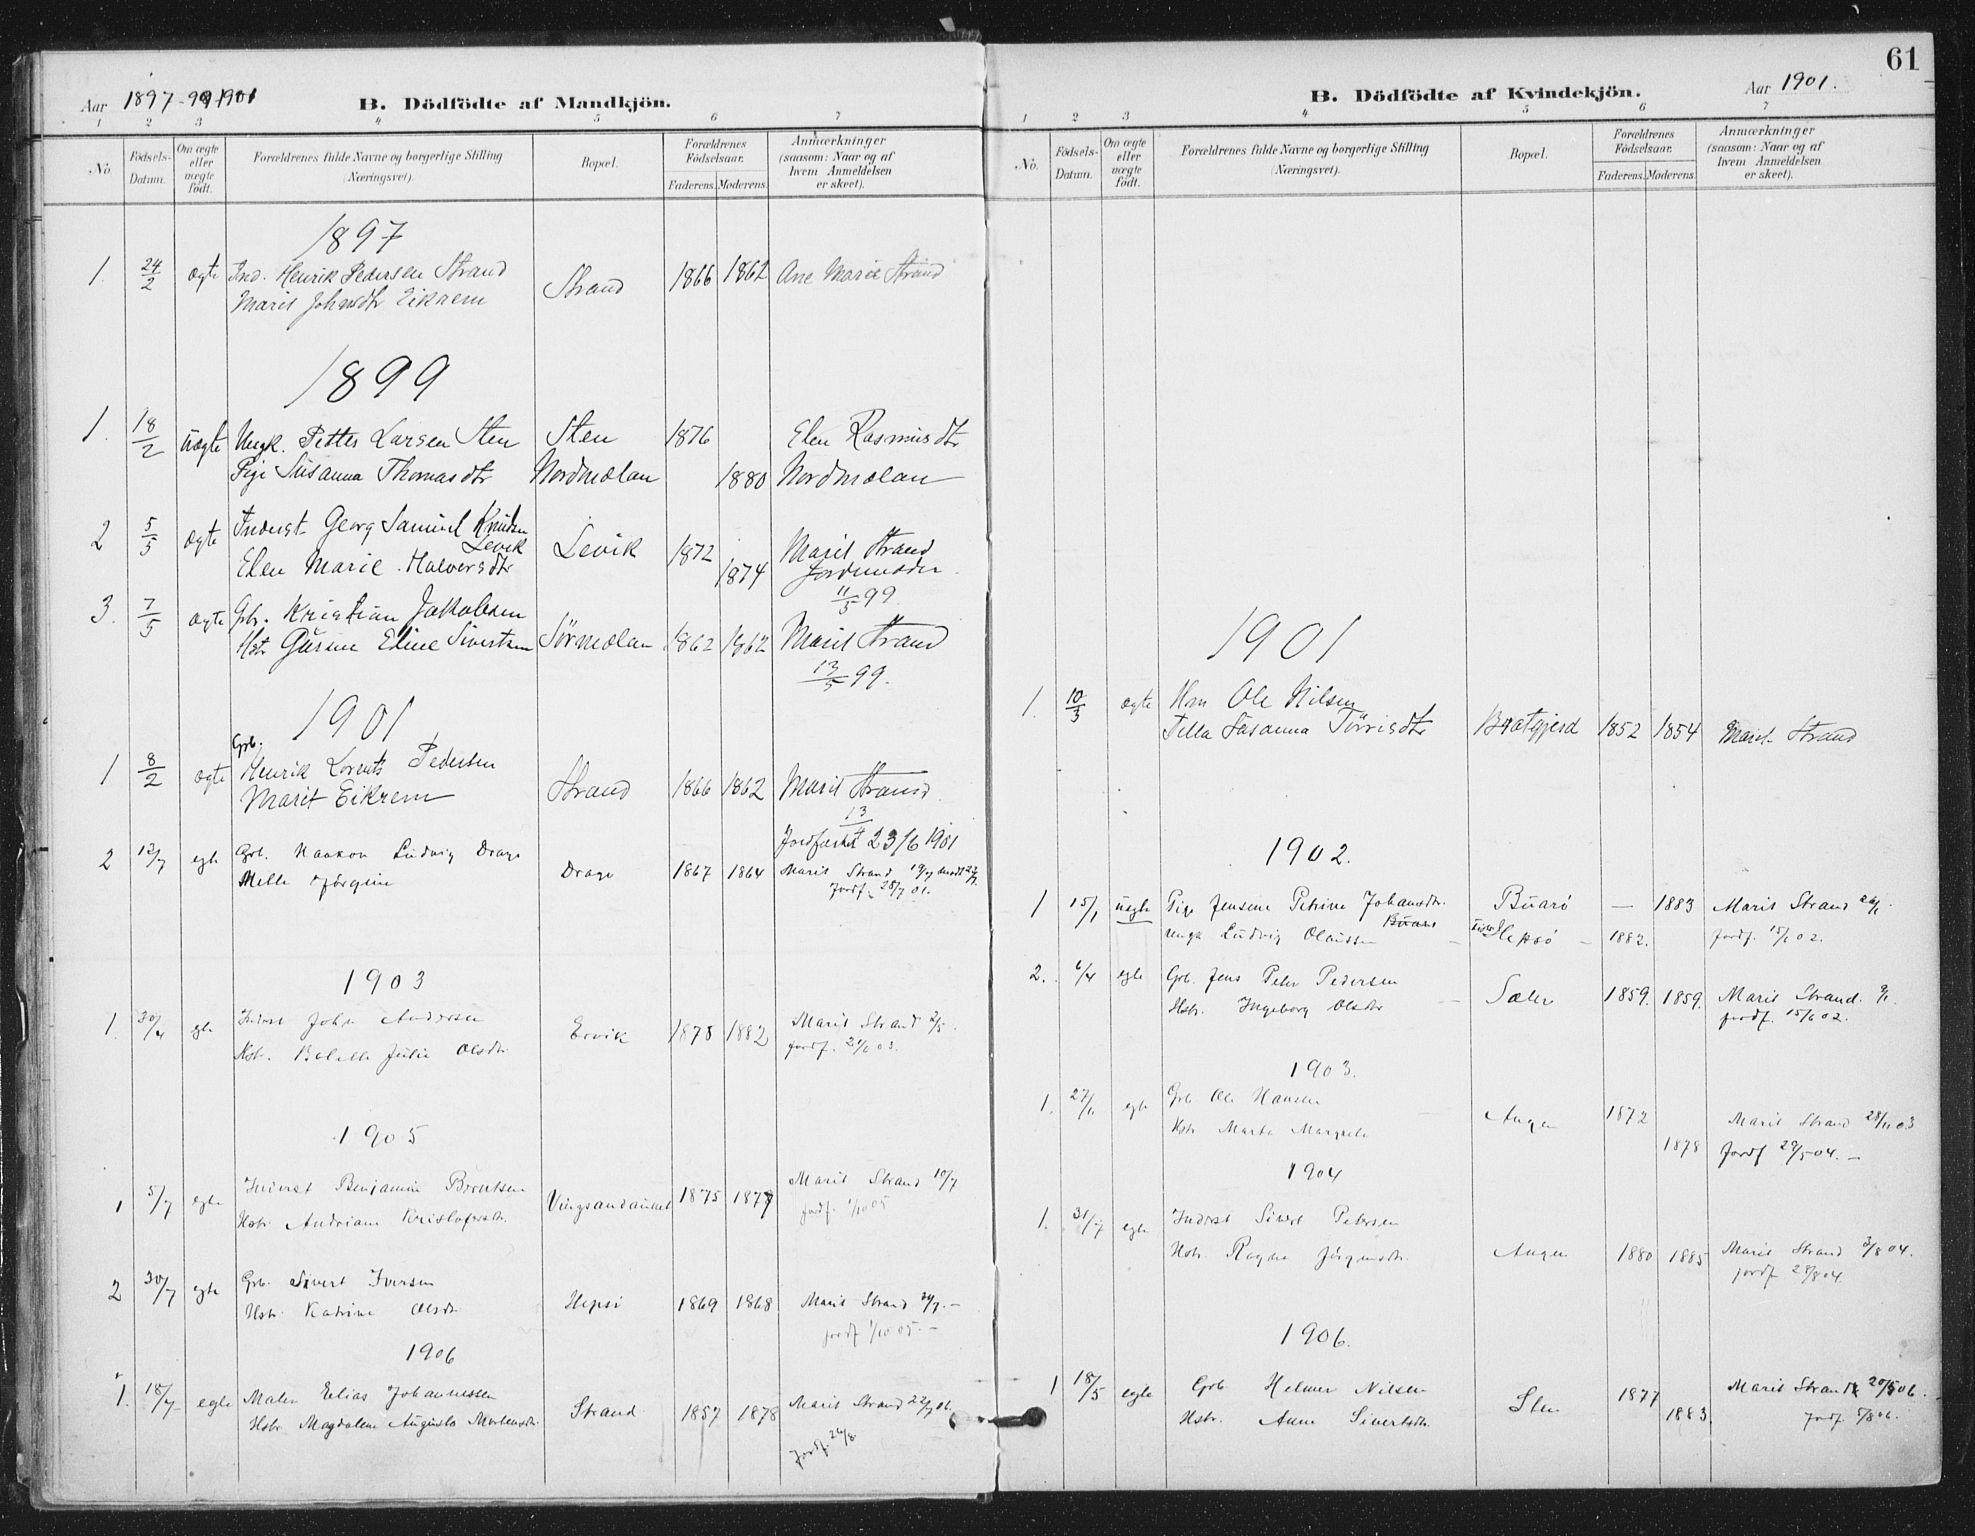 Aar 1897-99-1901
B. Dödfödte af Mandkjön.
1 2 3 4 5 6 7
No.
Födsels-Datum.
Om ægte eller uægte födt.
Forældrenes fulde Navne og borgerlige Stilling
(Næringsvei).
Bopæl.
Forældrenes Födselsaar.
Faderens. Moderens.
Anmærkninger
(saasom: Naar og af
hvem Anmeldelsen
er skeet).
1897
1. 24/2 ægte Ind. Henrik Pedersen Strand Strand 1866 1862 Ane Marie Strand
Marit Johnsdtr Eikrem
1899
1. 18/2 uægte Ungk. Petter Larsen Sten Sten 1876 Elen Rasmusdtr
Pige Susanna Thomasdtr Nordmelan 1880 Nordmelan
2 5/5 ægte Inderst Georg Samuel Knudsen
Levik
Elen Marie Halvorsdtr Levik 1872 1874 Marit Strand
11/5 99
3. 7/5 ægte Gbr. Kristian Jakobsen
Hstr Gurine Eline Sivertsen Sörmelan 1862 1862 Marit Strand
13/5 99.
1901
Grb.
1 8/2 ægte Henrik Lorents Pedersen
Marit Eikrem Strand 1866 1862 Marit Strand
13
Jordfæstet 23/6 1901
2 12/7 egte Grb. Haakon Ludvig Drage Drage 1867 1864 Marit Strand
Melle Jørgine jordf. 28/7 01.
1903
1. 30/4 egte Inderst John Andersen Ervik 1878 1882 Marit Strand 2/5.
Hstr. Bolette Julie Olsdtr. jordf. 21/6 03.
1905
1 5/7 egte Inderst Benjamin Berntsen 1875 1877 Marit Strand 10/7
Hstr. Andriane Kristofersdtr. jordf. 1/10 05
2 30/7 egte Grb. Sivert Iversen
Hstr. Katrine Olsdtr Hepsö 1869 1868 Marit Strand 30/7.—
jordf 1/10 05.—
1906
1. 18/7 egte Maler Elias Johannessen
Hstr. Magdalene Augusta Mortensdtr. Strand 1857 1878 Marit Strand 22/7 06.
Jordf. 26/8.
61
B. Dödfödte af Kvindekjön.
Aar 1901.
1 2 3 4 5 6 7
No.
Födsels-Datum.
Om ægte eller uægte födt.
Forældrenes fulde Navne og borgerlige Stilling
(Næringsvei).
Bopæl.
Forældrenes Födselsaar.
Faderens. Moderens.
Anmærkninger
(saasom: Naar og af
hvem Anmeldelsen
er skeet).
1901
1. 10/3 ægte Hm Ole Nilsen
Susanna Tørrisdtr Bratgjerd 1852 1854 Marit Strand
1902.
1 15/1 uegte Pige Jensine Petrine Johansdtr. Buarö — 1883 Marit Strand
Buarö
Ungk Ludvig Olaussen — Hepsö — 1882. jordf. 15/6 02.
2. 6/4 egte Grb. Jens Peter Pedersen
Hstr. Ingeborg Olsdtr — Sæter 1859. 1859. Marit Strand.
jordf. 15/6 02.
1903.
1. 27/11 egte Grb Ole Hansen
Hstr Marta Margrete Aunen 1872 1878 Marit Strand 28/11 03
Jordf 29/5 04.—
1904
1. 31/7 egte Inderst Sivert Petersen
Hstr. Ragna Jørgensdtr. Aunen 1880 1885 Marit Strand 3/8 04.
jordf 28/8 04.
1906.
1 18/5 egte Grb. Helmer Nilsen
Hstr. Anne Sivertsdtr. Sten 1877 1883. Marit Strand 20/5 06.
jordf. 5/8 06.